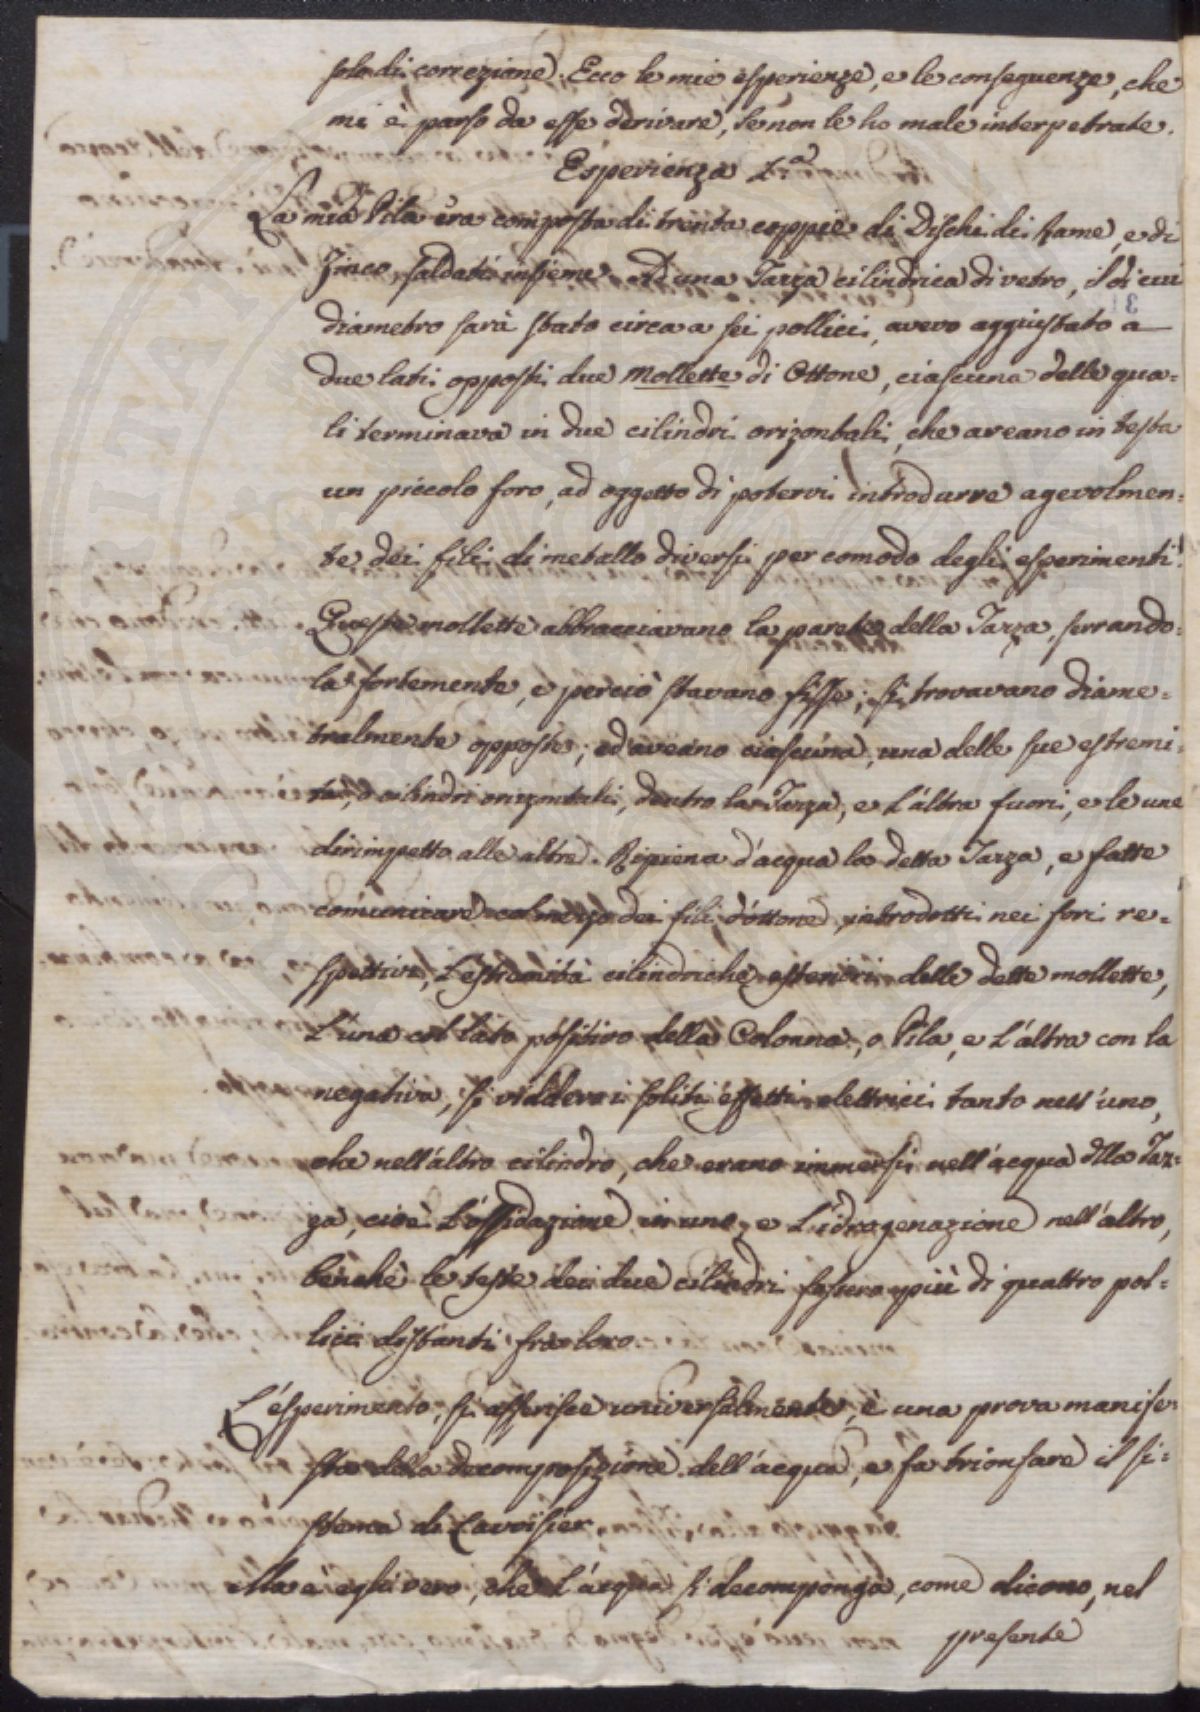 solo di correzione. Ecco le mie esperienze, e le conseguenze, che
mi è parso da esse derivare, se non le ho male interpetrate.
Esperienza 1.a
La mia Pila era composta di trenta coppie di Dischi di Rame, e di
Zinco, saldati insieme. Ad una Tazza cilindrica di vetro, il di cui
diametro sarà stato circa a sei pollici, avevo aggiustato a
due lati opposti due Mollette di Ottone, ciascuna delle qua=
li terminava in due cilindri orizontali, che aveano in testa
un piccolo foro, ad oggetto di potervi introdurre agevolmen=
te dei fili di metallo diversi per comodo degli esperimenti.
Queste mollette abbracciavano la parete della Tazza, serrando=
la fortemente, e perciò stavano fisse; si trovavano diame=
tralmente opposte; ed aveano ciascuna, una delle sue estremi=
tà, o cilindri orizontali, dentro la Tazza, e l'altra fuori, e le une
dirimpetto alle altre. Ripiena d'acqua la detta Tazza, e fatte
comunicare col mezzo dei fili d'ottone introdotti nei fori re=
spettivi, l'estremità cilindriche esteriori delle dette mollette,
l'una col lato positivo della Colonna, o Pila, e l'altra con la
negativa, si viddero i soliti effetti elettrici tanto nell'uno,
che nell'altro cilindro, che erano immersi nell'acqua della Taz=
za, cioè l'ossidazione in uno, e l'idrogenazione nell'altro,
benchè le teste dei due cilindri fossero più di quattro pol=
lici distanti fra loro.
L'esperimento, si asserisce universalmente, è una prova manife=
sta della decomposizione dell'acqua, e fa trionfare il si=
stema di Lavoisier.
Ma è egli vero, che l'acqua si decomponga, come dicono, nel
presente